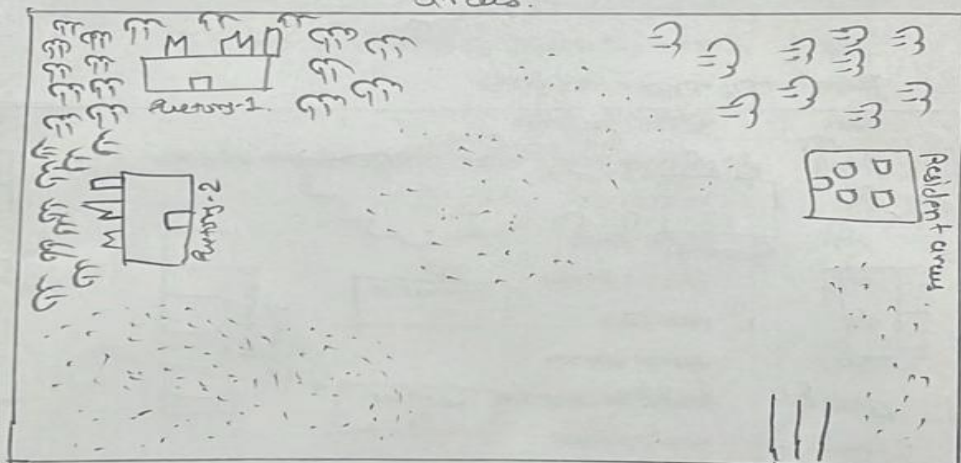 areas.
Factory-1.
Factory-2
Resident areas.